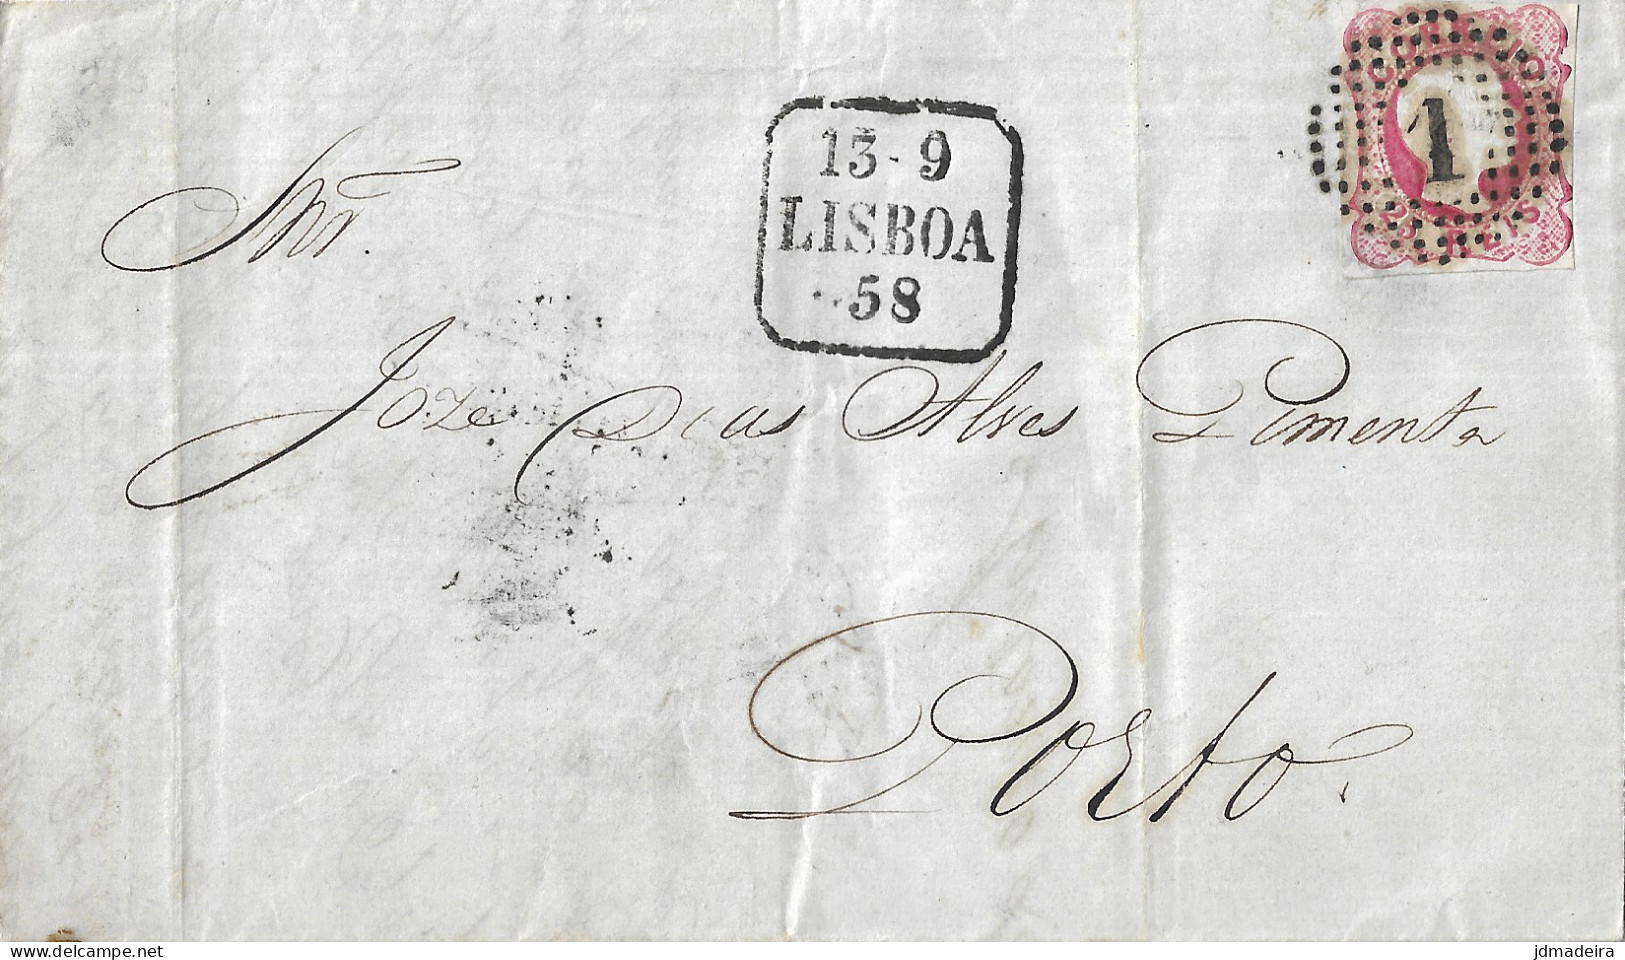 CORREIO
1
25 REIS
13-9
LISBOA
58
Snr.
Joze Dias Alves Pimenta
Porto.
www.delcampe.net
jdmadeira